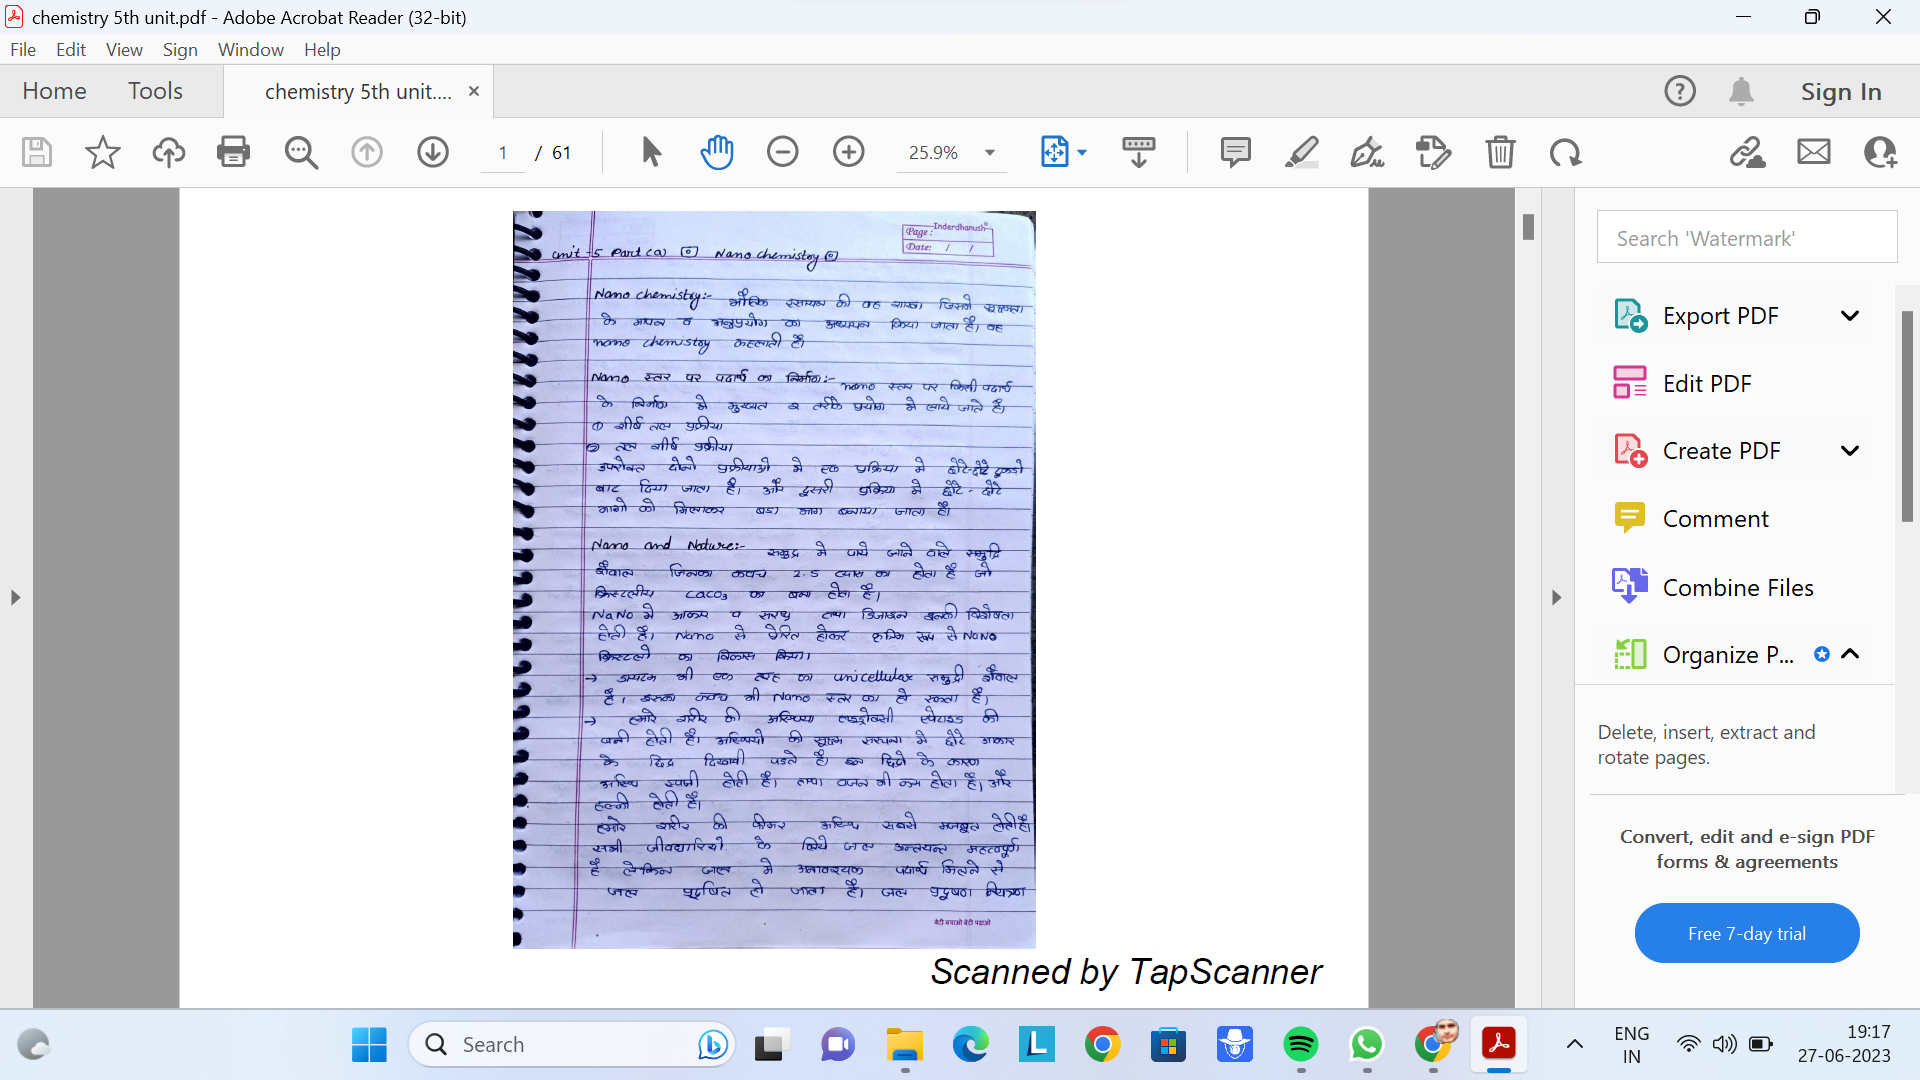 chemistry 5th unit.pdf - Adobe Acrobat Reader (32-bit)
File Edit View Sign Window Help
Home Tools chemistry 5th unit.... × Sign In
1 / 61 25.9%
Inderdhanush
Page :
Date: / /
unit-5 Part (a) Nano chemistry
Nano chemistry:- भौतिक रसायन की वह शाखा जिसमे सूक्ष्मता
के मापन व अनुप्रयोग का अध्ययन किया जाता है। वह
nano chemistry कहलाती है।
Nano स्तर पर पदार्थ का निर्माण:- nano स्तर पर किसी पदार्थ
के निर्माण मे मुख्यत 2 तरीके प्रयोग मे लाये जाते है।
① शीर्ष तल प्रक्रीया
② तल शीर्ष प्रक्रीया
उपरोक्त दोनो प्रक्रीयाओ मे एक प्रक्रिया मे छोटे-छोटे टुकडो
बाट दिया जाता है। और दुसरी प्रक्रिया मे छोटे-छोटे
भागो को मिलाकर बडा भाग बनाया जाता है।
Nano and Nature:- समुद्र मे पाये जाने वाले समुद्रि
शैवाल जिनका कवच 2.5 व्यास का होता है जो
क्रिस्टलीय CaCO3 का बना होता है।
NaNo मे आकार व तथा डिजाइन इनकी विशेषता
होती है। Nano से प्रेरित होकर कृत्रिम रूप से NaNo
क्रिस्टलो का विकास किया।
→ डायटम भी एक तरह का unicellular समुद्री शैवाल
है। इसका कवच भी Nano स्तर का हो सकता है।
→ हमारे शरीर की अस्थिया की
बनी होती है। अस्थियो की सूक्ष्म संरचना मे छोटे आकार
के छिद्र दिखायी पडते है। इन छिद्रो के कारण
अस्थि होती है। तथा वजन भी कम होता है। और
हल्की होती है।
हमारे शरीर की फीमर अस्थि सबसे मजबूत होती है।
सभी जीवधारियो के लिये जल अन्तयन्त महत्वपूर्ण
है लेकिन जल मे अनावश्यक पदार्थ मिलने से
जल प्रदूषित हो जाता है। जल प्रदूषण नियंत्रण
बेटी बचाओ बेटी पढ़ाओ
Scanned by TapScanner
Search 'Watermark'
Export PDF
Edit PDF
Create PDF
Comment
Combine Files
Organize P...
Delete, insert, extract and
rotate pages.
Convert, edit and e-sign PDF
forms & agreements
Free 7-day trial
Search
ENG
IN
19:17
27-06-2023